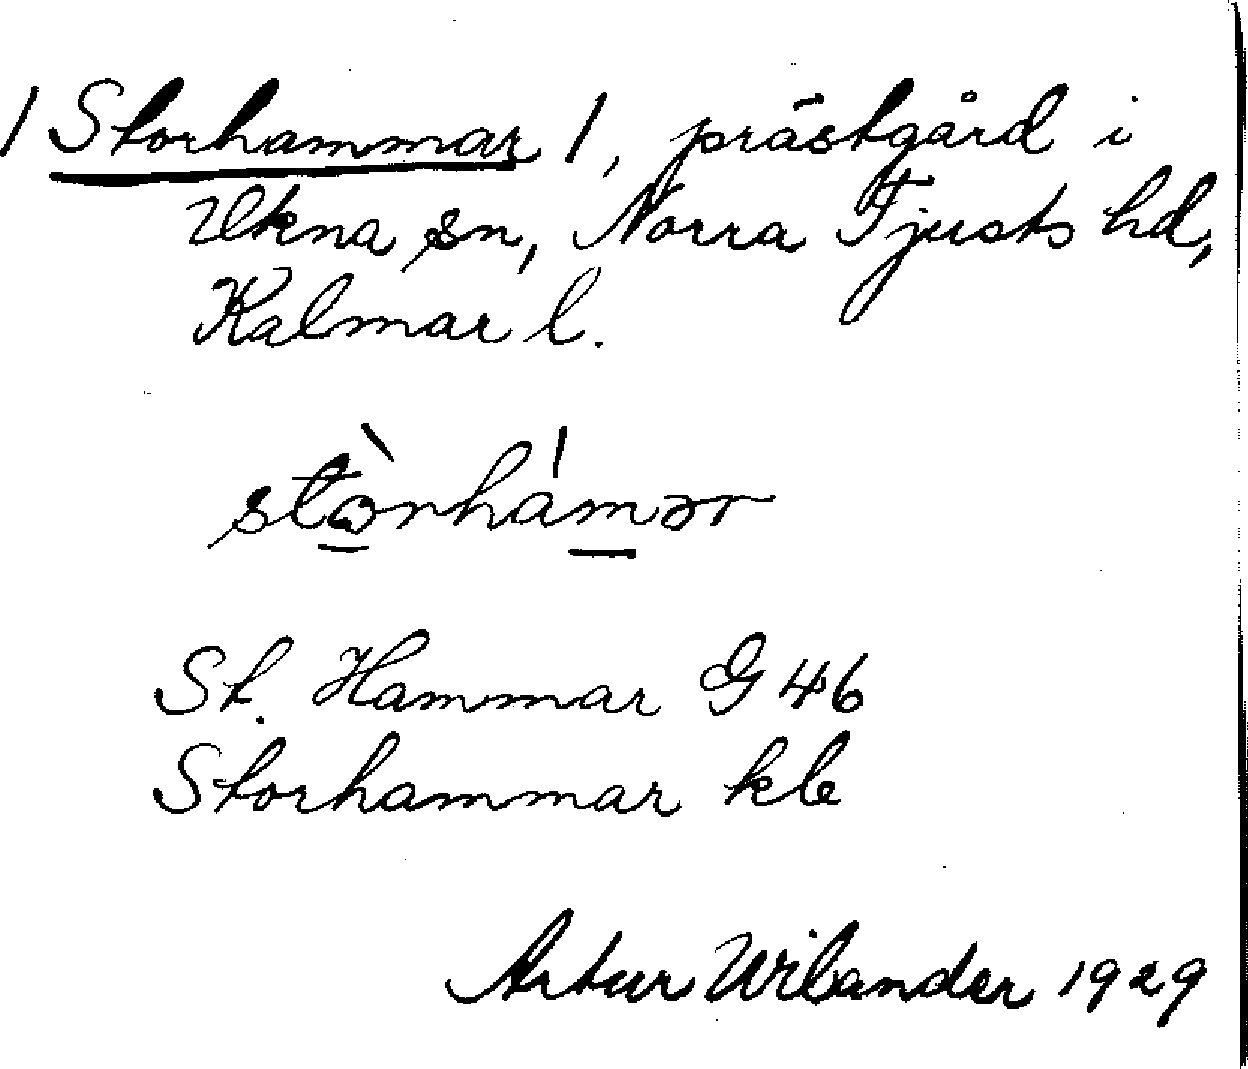 / Storhammar /, prästgård i
Ukna sn, Norra Tjusts hd,
Kalmar l.
stòrhámər
St. Hammar G 46
Storhammar kle
Artur Wilander 1929